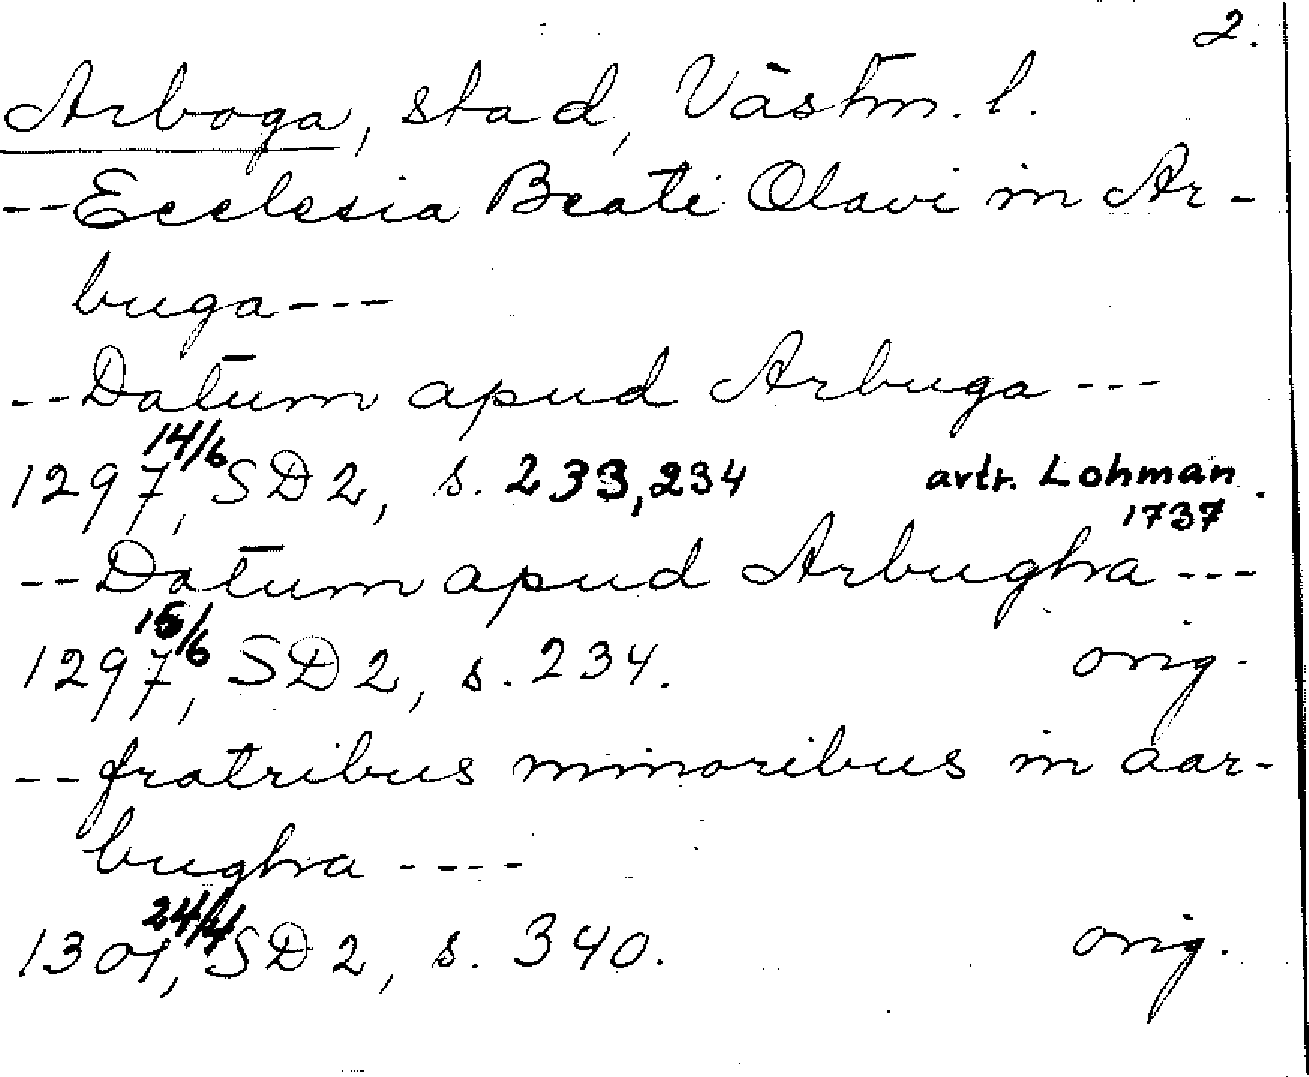 2.
Arboga, stad, Västm. l.
--Ecclesia Beati Olavi in Ar-
buga---
--Datum apud Arbuga---
1297 14/6, SD 2, s. 233, 234 avtr. Lohman.
1737
--Datum apud Arbugha---
1297 15/6, SD 2, s. 234. orig.
--fratribus minoribus in aar-
bugha----
1301 24/4, SD 2, s. 340. orig.